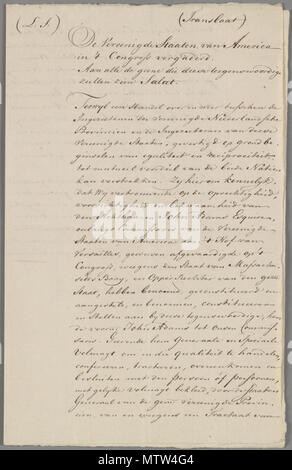 (L. S.) (Translaat)
De Vereenigde Staaten van America
in 't Congress vergaderd.
Aan alle de geene die deese tegenswoordige
zullen zien Salut.
Terwyl een Handel over en weer tusschen de
Ingezetenen der Vereenigde Nederlandsche
Provincien en de Ingezetenen van deese
Vereenigde Staaten, gevestigd op grond be
ginselen van egualiteit en reciprociteit
tot mutueel voordeel van de beide Natien
kan verstrekken. Zy hiermeede kennelyk
dat Wy vertrouwende op de oprechtigheid,
en bequaamheid van
John Adams Esquire
van de Vereenigde
Staaten van America 't Hof van
Versailles, geweesen afgevaardigde op 't
Congress, wegens den Staat van Massachu
setts Baay, en Opper Rechter van den gem.
Staat, hebben benoemd, geconstitueerd en
aangesteld, en benoemen, constitueeren
en stellen aan by deese tegenswoordige, hem
de voorsz. John Adams tot Onsen Commis
saris. Geevende hem Generaale en Speciaale
volmagt om in die qualiteit te handelen
confereeren, tracteeren, overeenkomen en
besluiten met den persoon of persoonen,
met gelyke volmagt bekleed, door de Staaten
Generaal van de gem. Vereenigde Provin
cien, van en wegens een Tractaat van
alamy
MTW4G4